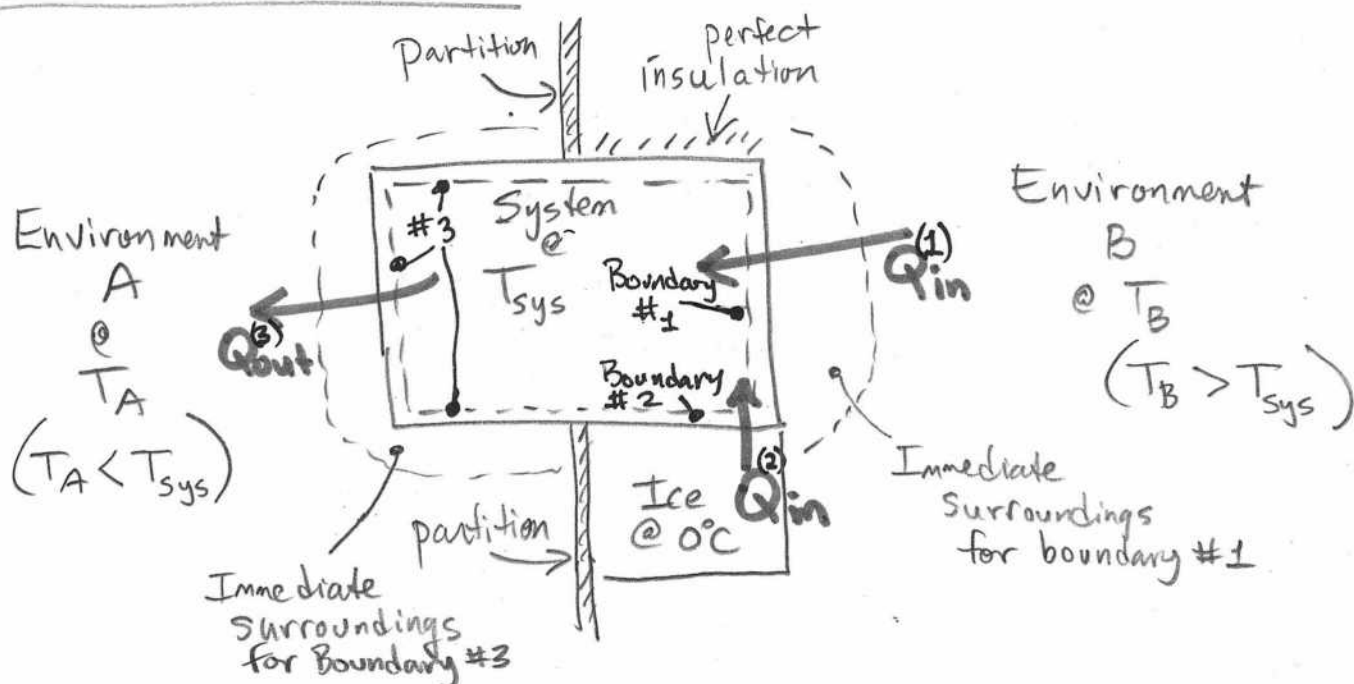 Partition
perfect
insulation
Environment
A
@
T_A
(T_A < T_sys)
#3
System
@
T_sys
Boundary
#1
Boundary
#2
Q_in^(1)
Q_in^(2)
Q_out^(3)
Environment
B
@ T_B
(T_B > T_sys)
Ice
@ 0°C
partition
Immediate
surroundings
for Boundary #3
Immediate
surroundings
for boundary #1